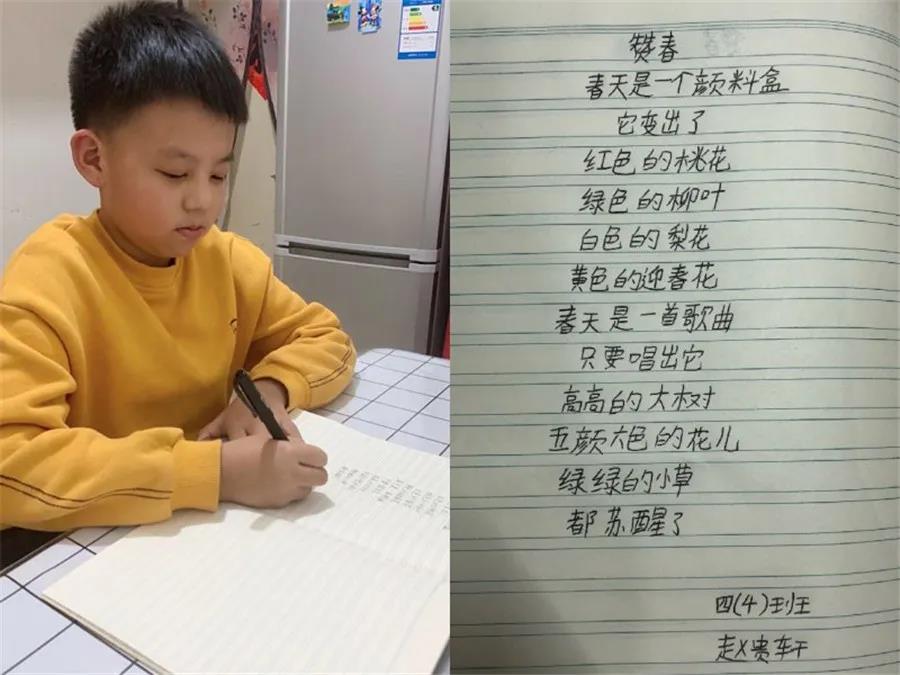 赞春
春天是一个颜料盒
它变出了
红色的桃花
绿色的柳叶
白色的梨花
黄色的迎春花
春天是一首歌曲
只要唱出它
高高的大树
五颜六色的花儿
绿绿的小草
都苏醒了
四(4)班
赵贵轩